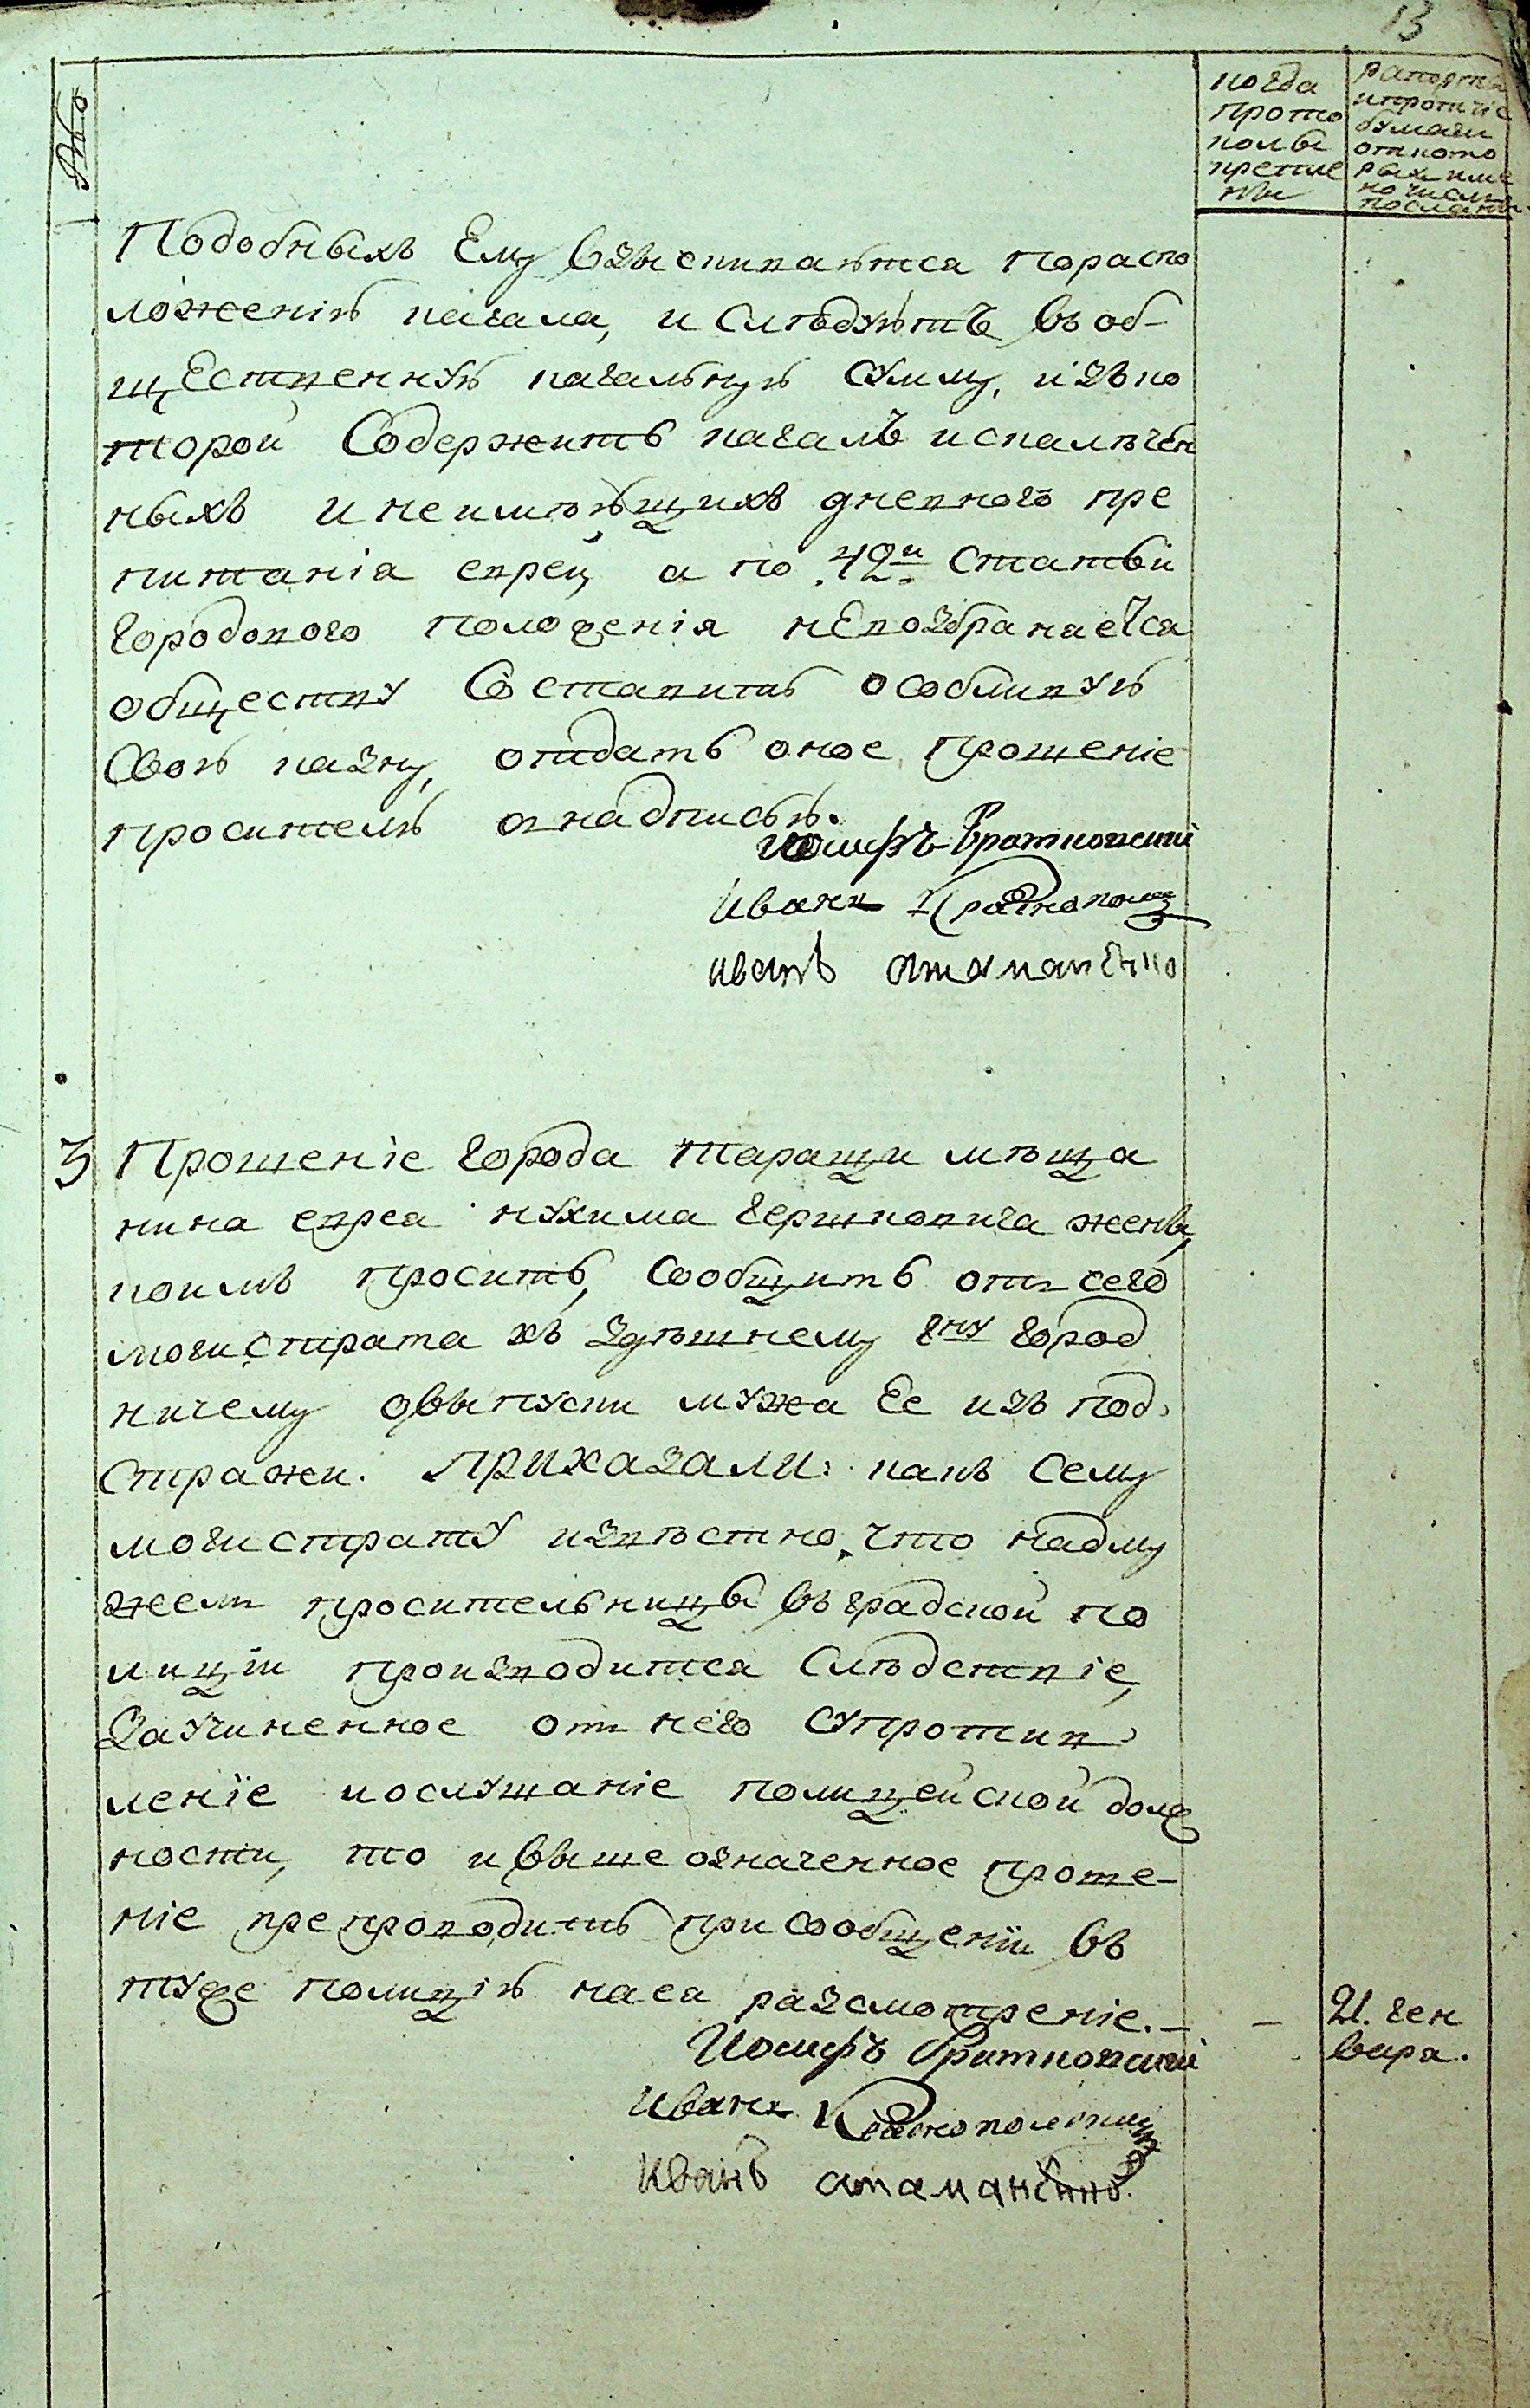 13
когда
прото
колы
крепле
ны
рапорты
и протчіе
бумаги
от кото
рых име
но числа
посланы
Подобныхъ Ему взыскиваѣтся пораспо
ложенію кагала, и слѣдуѣтъ въ об-
щЕственную кагальную сумму, изъ ко
торой Содержитъ кагалъ искалѣчен
ныхъ и неимѣющихъ дневного пре
питанія евреи, а по 49й Статьи
городового положенія нЕвозбраняется
обществу Составить особливую
Свою казну, отдать оное прошеніе
просителю с надписью.
Иосифъ Братковскій
Иванъ
иванъ атаманенко
3 Прошеніе города Таращи мѣща
нина еврея нухима гершковича жены,
коимъ проситъ, Сообщить отъ сего
могистрата къ здѣшнему гну город
ничему овыпуски мужа Ее изъ под
Стражи. ПРИКАЗАЛИ: какъ Сему
могистрату извѣстно, что надму
жемъ просительницы въ градской по
лиціи производится Слѣдствіе,
Зачиненное отъ него супротив
леніе и ослушаніе полицейской долж
ности, то и выше означенное проше-
ніе препроводить при сообщеніи въ
туже полицію наея разсмотреніе.-
- 21. ген
варя.
Иосифъ Братковскій
Иванъ
Иванъ атаманенко.